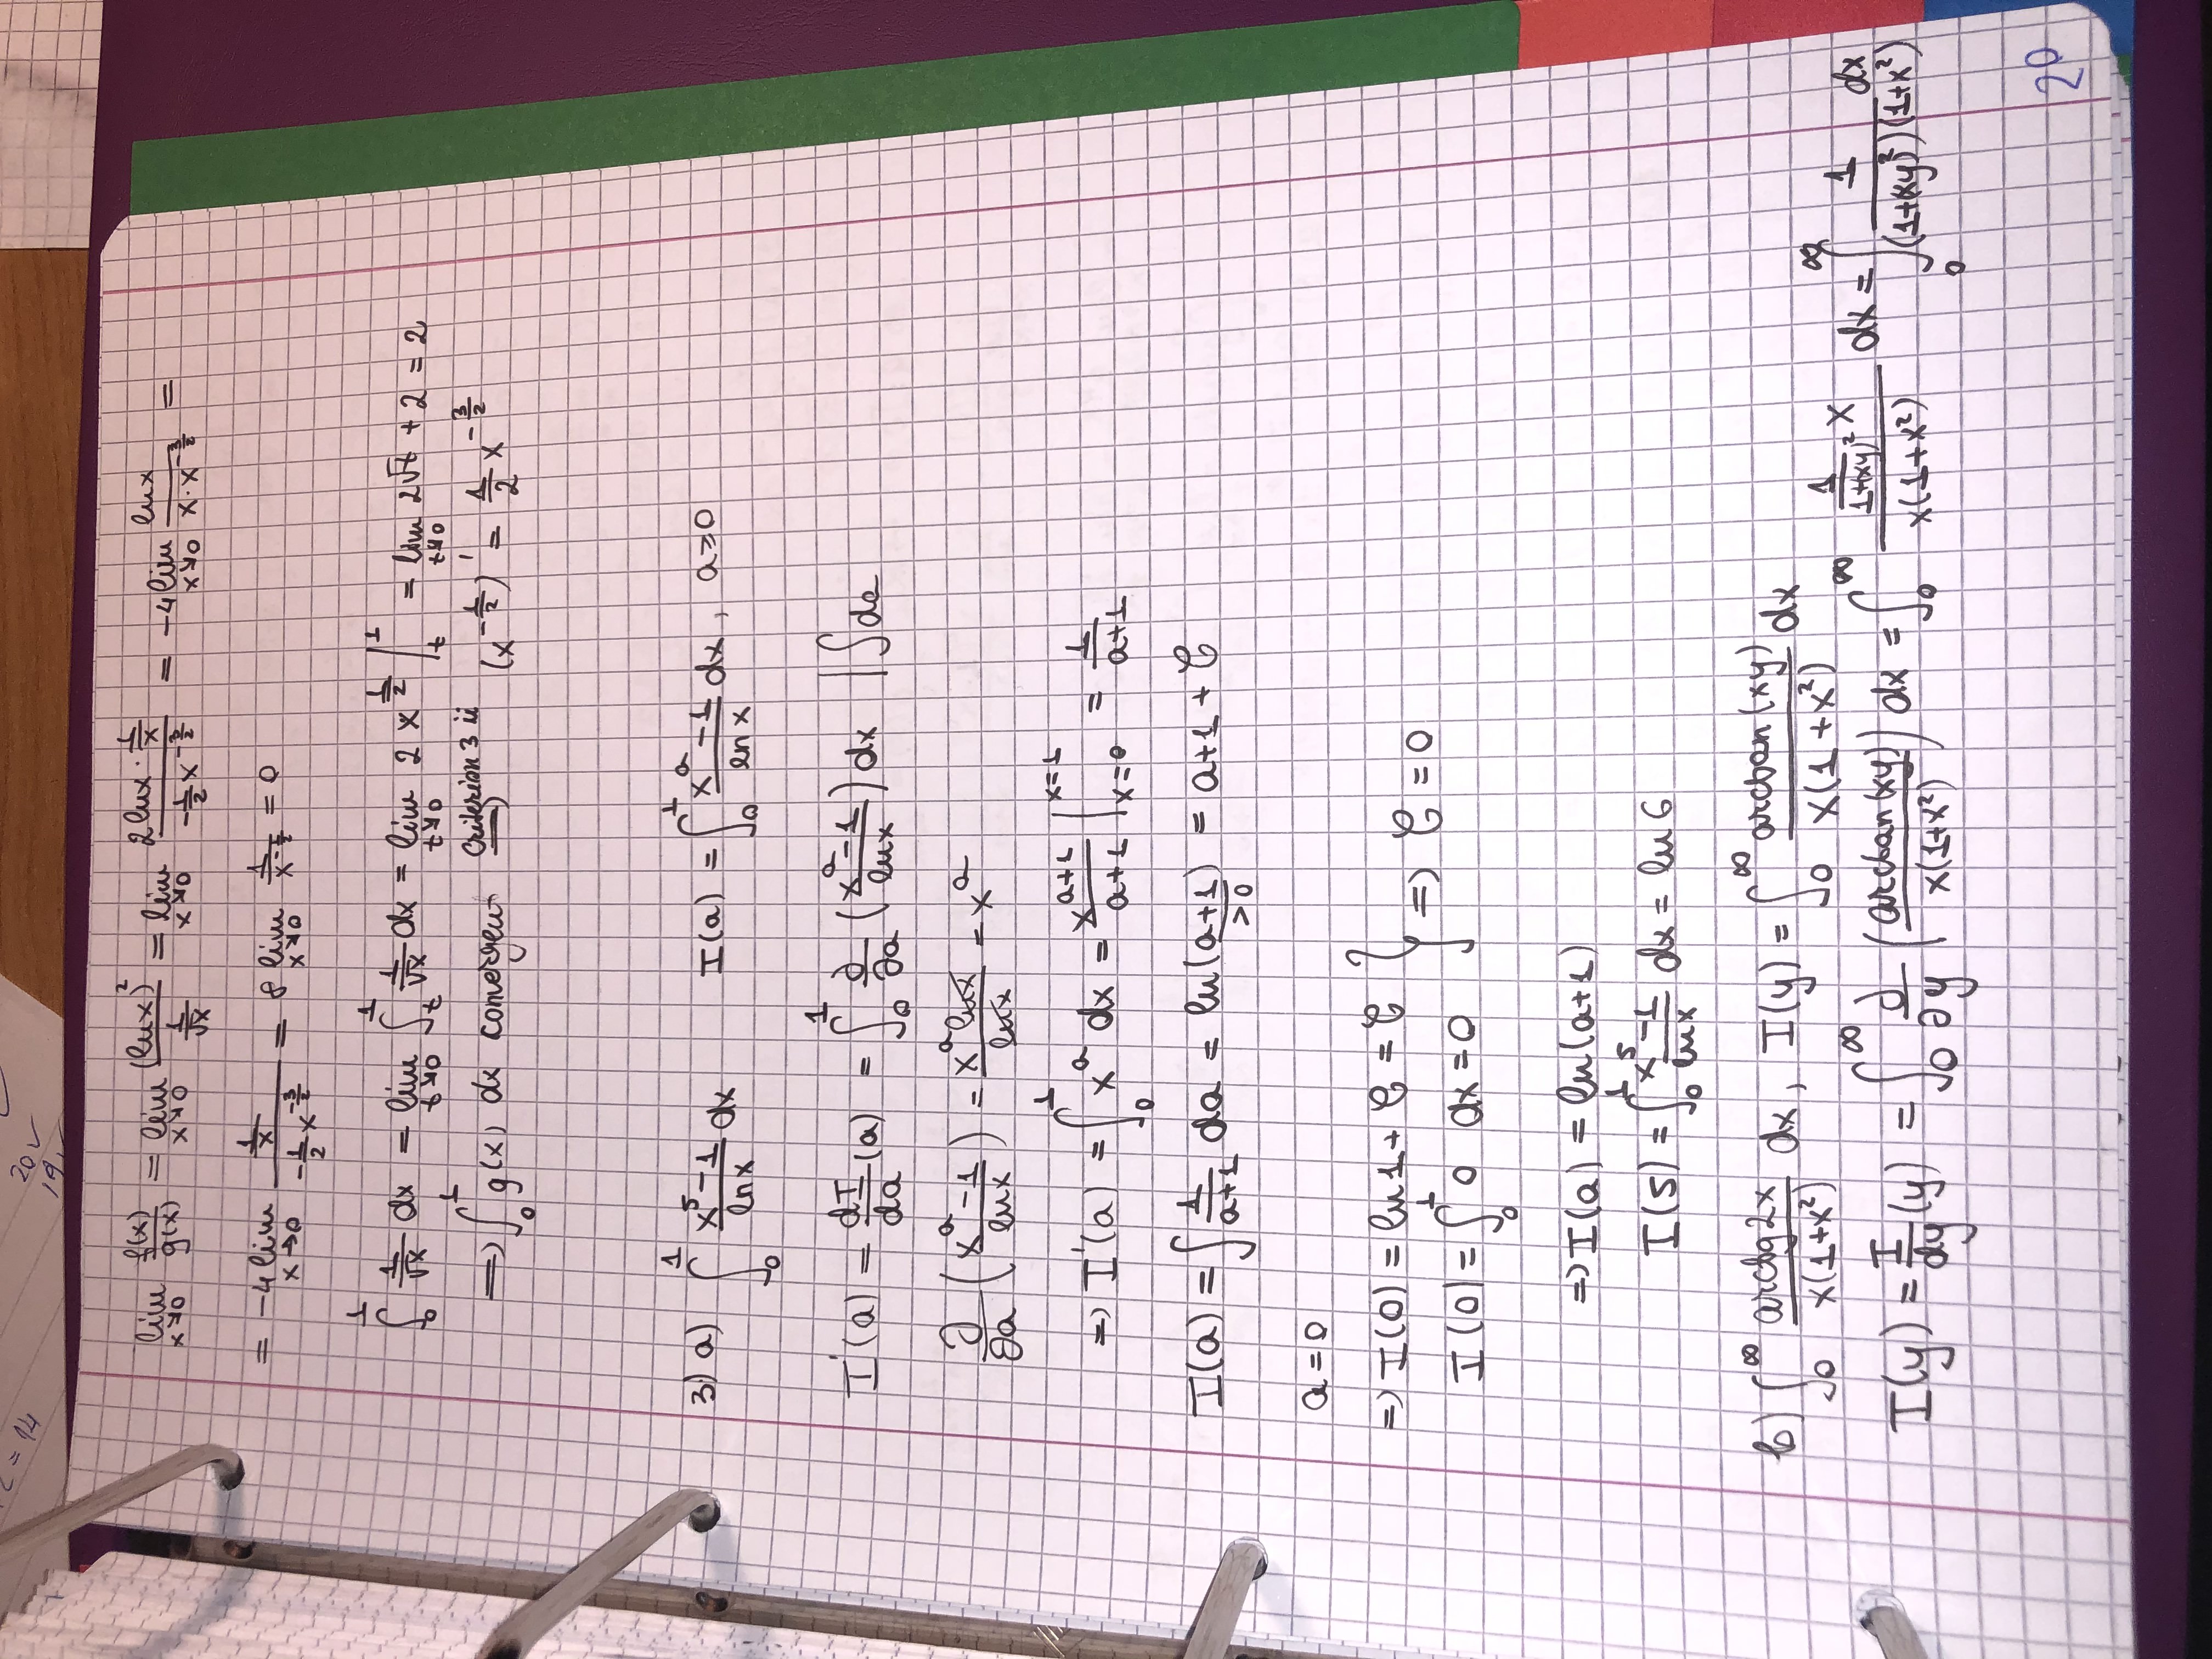 = 14
20 ✓
19 ✓
lim x↘0 f(x)/g(x) = lim x↘0 (ln x)² / (1/√x) = lim x↘0 (2 ln x · 1/x) / (-1/2 x^(-3/2)) = -4 lim x↘0 ln x / (x · x^(-3/2)) =
= -4 lim x→0 (1/x) / (-1/2 x^(-3/2)) = 8 lim x↘0 1/x^(-1/2) = 0
∫₀¹ 1/√x dx = lim t↘0 ∫ₜ¹ 1/√x dx = lim t↘0 2 x^(1/2) |ₜ¹ = lim t↘0 2√t + 2 = 2
=> ∫₀¹ g(x) dx convergent Criterion 3 ii => (x^(-1/2))' = 1/2 x^(-3/2)
3) a) ∫₀¹ (x⁵ - 1)/ln x dx I(a) = ∫₀¹ (xᵃ - 1)/ln x dx, a ≥ 0
I'(a) = dI/da (a) = ∫₀¹ ∂/∂a ((xᵃ - 1)/ln x) dx | ∫ da
∂/∂a ((xᵃ - 1)/ln x) = xᵃ ln x / ln x = xᵃ
=> I'(a) = ∫₀¹ xᵃ dx = x^(a+1)/(a+1) | x=1 x=0 = 1/(a+1)
I(a) = ∫ 1/(a+1) da = ln(a+1) = a+1 + C
> 0
a = 0
=> I(0) = ln 1 + C = C } => C = 0
I(0) = ∫₀¹ 0 dx = 0
=> I(a) = ln(a+1)
I(5) = ∫₀¹ (x⁵ - 1)/ln x dx = ln 6
b) ∫₀^∞ arctg2x / (x(1+x²)) dx, I(y) = ∫₀^∞ arctan(xy) / (x(1+x²)) dx
I(y) = I/dy (y) = ∫₀^∞ ∂/∂y (arctan(xy) / (x(1+x²))) dx = ∫₀^∞ (1/(1+(xy)²) x) / (x(1+x²)) dx = ∫₀^∞ 1 / ((1+(xy)²)(1+x²)) dx
20